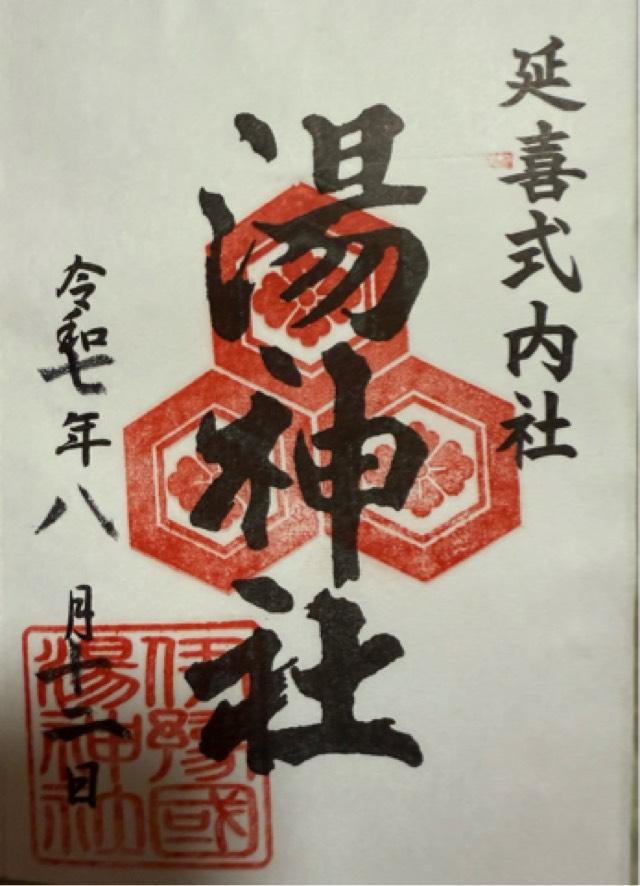 延喜式内社
湯神社
令和七年八月十二日
伊豫國
湯神社